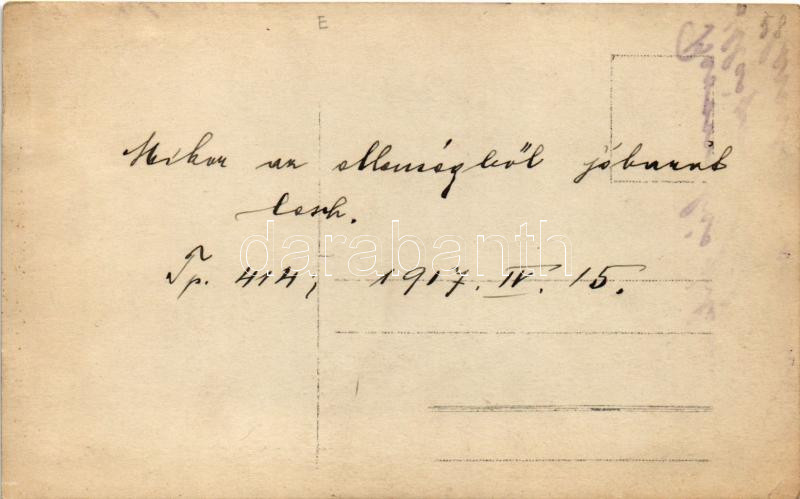 E
58
Mikor az ellenségből jóbarát
lesz.
darabanth
Tp. 414, 1917. IV. 15.